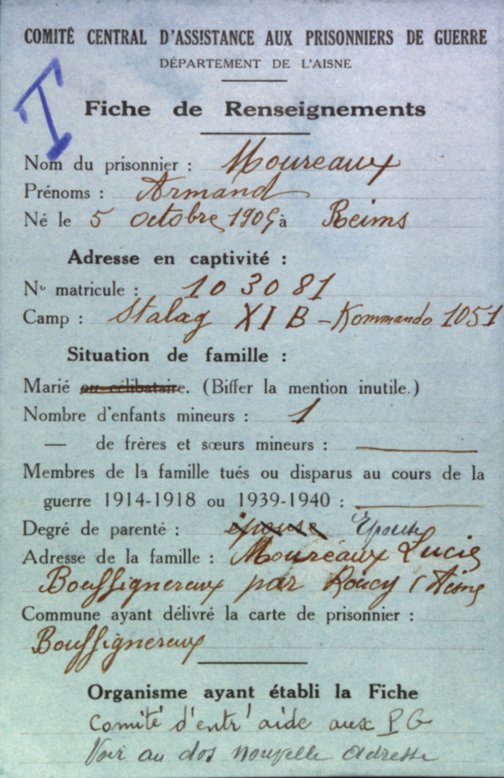 COMITÉ CENTRAL D'ASSISTANCE AUX PRISONNIERS DE GUERRE
DÉPARTEMENT DE L'AISNE
T
Fiche de Renseignements
Nom du prisonnier : Moureaux
Prénoms : Armand
Né le 5 octobre 1909 à Reims
Adresse en captivité :
No matricule : 103081
Camp : Stalag XI B - Kommando 1051
Situation de famille :
Marié ou célibataire. (Biffer la mention inutile.)
Nombre d'enfants mineurs : 1
— de frères et sœurs mineurs :
Membres de la famille tués ou disparus au cours de la
guerre 1914-1918 ou 1939-1940 :
Degré de parenté : épouse Épouse
Adresse de la famille : Moureaux Lucie
Bouffignereux par Roucy (Aisne
Commune ayant délivré la carte de prisonnier :
Bouffignereux
Organisme ayant établi la Fiche
Comité d'entr'aide aux PG
Voir au dos nouvelle adresse